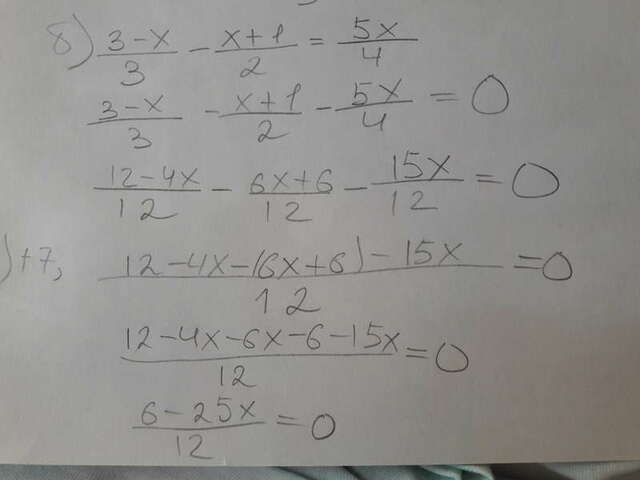 8) (3-x)/3 - (x+1)/2 = 5x/4
(3-x)/3 - (x+1)/2 - 5x/4 = 0
(12-4x)/12 - (6x+6)/12 - 15x/12 = 0
)+7, (12-4x-(6x+6)-15x)/12 = 0
(12-4x-6x-6-15x)/12 = 0
(6-25x)/12 = 0